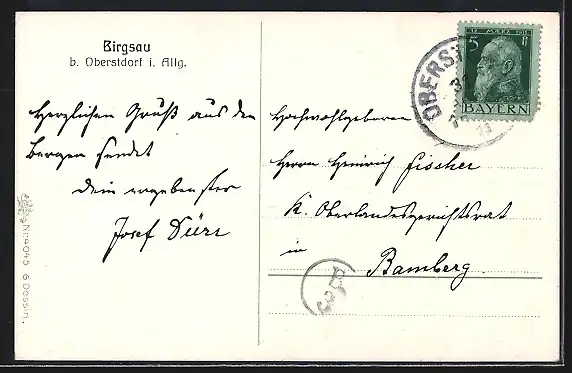 Birgsau
b. Oberstdorf i. Allg.
Herzlichen Gruß aus den
Bergen sendet
Dein ergebenster
Josef Dürr
Nr. 4045 6 Dessin.
OBERST
12. MÄRZ 1911
5
BAYERN
Hochwohlgeboren
Herrn Heinrich Fischer
K. Oberlandesgerichtsrat
in
Bamberg.